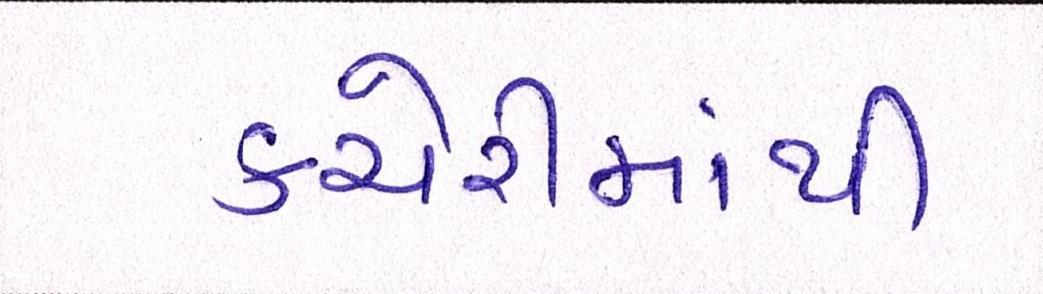 કચેરીમાંથી